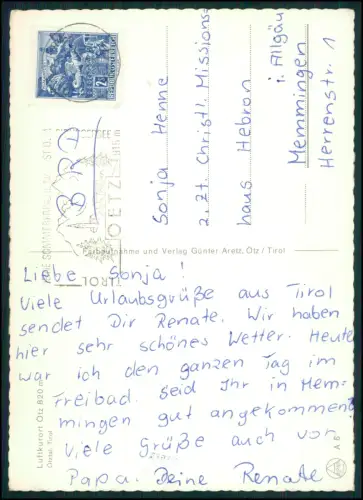 Liebe Sonja!
Viele Urlaubsgrüße aus Tirol
sendet Dir Renate. Wir haben
hier sehr schönes Wetter. Heute
war ich den ganzen Tag im
Freibad. Seid Ihr in Mem-
mingen gut angekommen?
Viele Grüße auch von
Papa. Deine Renate
Sonja Henne
z. Zt. Christl. Missions-
haus Hebron
i. Allgäu
Memmingen
Herrenstr. 1
BRD
OETZ
TIROL
Farbaufnahme und Verlag Günter Aretz, Ötz / Tirol
Luftkurort Ötz 820 m
Ötztal, Tirol